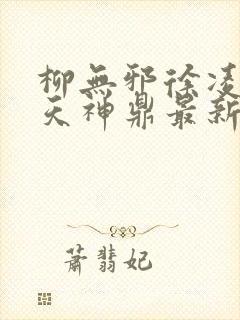 柳無邪徐凌
天神鼎最新
蕭翡妃